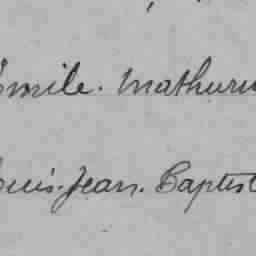 Emile. Mathurin
Louis. Jean. Baptist